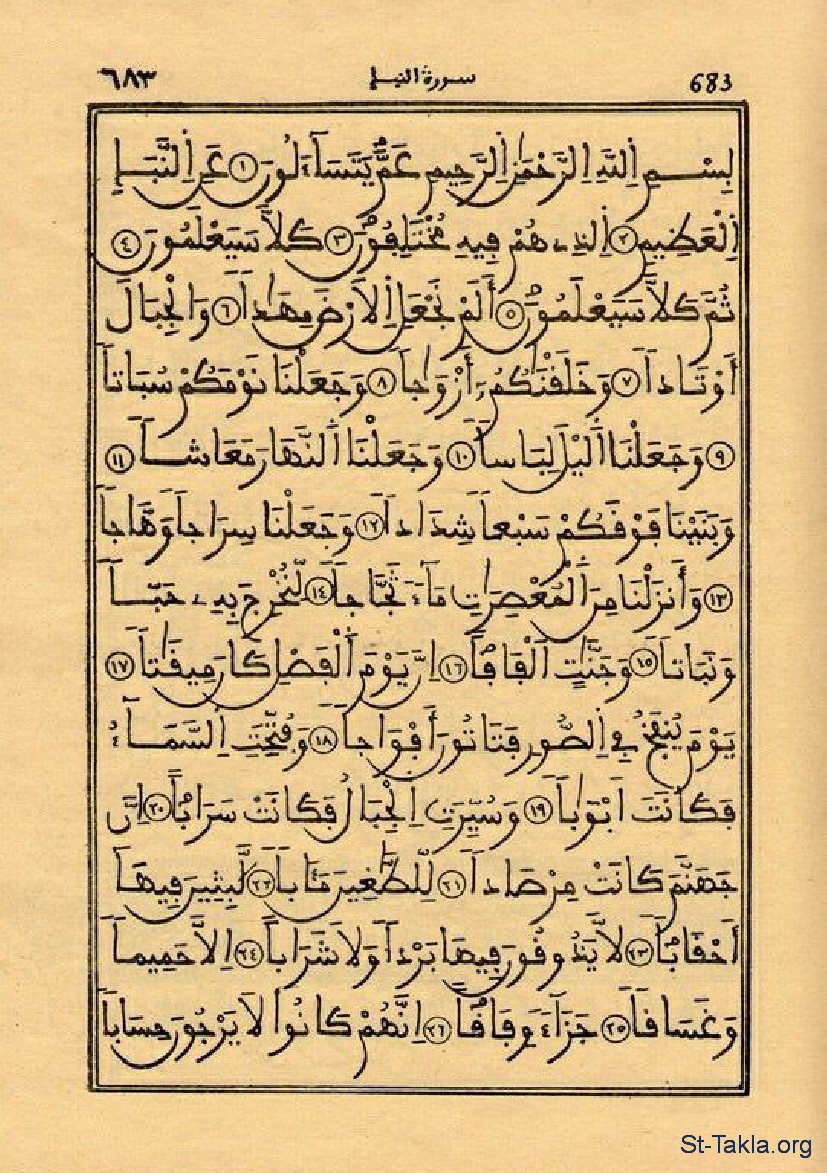 ٦٨٣ سورة النبإ 683
بِسْمِ اِللَّهِ اِلرَّحْمَٰنِ اِلرَّحِيمِ عَمَّ يَتَسَآءَلُونَ ١ عَنِ اِلنَّبَإِ
اِلْعَظِيمِ ٢ اِلذِے هُمْ فِيهِ مُخْتَلِفُونَ ٣ كَلاَّ سَيَعْلَمُونَ ٤
ثُمَّ كَلاَّ سَيَعْلَمُونَ ٥ أَلَمْ نَجْعَلِ اِلاَرْضَ مِهَٰداً ٦ وَالْجِبَالَ
أَوْتَاداً ٧ وَخَلَقْنَٰكُمُۥٓ أَزْوَٰجاً ٨ وَجَعَلْنَا نَوْمَكُمْ سُبَاتاً
٩ وَجَعَلْنَا اَلَيْلَ لِبَاساً ١٠ وَجَعَلْنَا اَلنَّهَارَ مَعَاشاً ١١
وَبَنَيْنَا فَوْقَكُمْ سَبْعاً شِدَاداً ١٢ وَجَعَلْنَا سِرَاجاً وَهَّاجاً
١٣ وَأَنزَلْنَا مِنَ اَلْمُعْصِرَٰتِ مَآءً ثَجَّاجاً ١٤ لِّنُخْرِجَ بِهِۦ حَبّاً
وَنَبَاتاً ١٥ وَجَنَّٰتٍ اَلْفَافاً ١٦ اِنَّ يَوْمَ اَلْفَصْلِ كَانَ مِيقَٰتاً ١٧
يَوْمَ يُنفَخُ فِے اِلصُّورِ فَتَاتُونَ أَفْوَاجاً ١٨ وَفُتِّحَتِ اِلسَّمَآءُ
فَكَانَتَ اَبْوَٰباً ١٩ وَسُيِّرَتِ اِلْجِبَالُ فَكَانَتْ سَرَاباً ٢٠ اِنَّ
جَهَنَّمَ كَانَتْ مِرْصَاداً ٢١ لِّلطَّٰغِينَ مَـَٔاباً ٢٢ لَّٰبِثِينَ فِيهَآ
أَحْقَاباً ٢٣ لاَّ يَذُوقُونَ فِيهَا بَرْداً وَلاَ شَرَاباً ٢٤ اِلاَّ حَمِيماً
وَغَسَاقاً ٢٥ جَزَآءً وِفَاقاً ٢٦ اِنَّهُمْ كَانُواْ لاَ يَرْجُونَ حِسَاباً
St-Takla.org